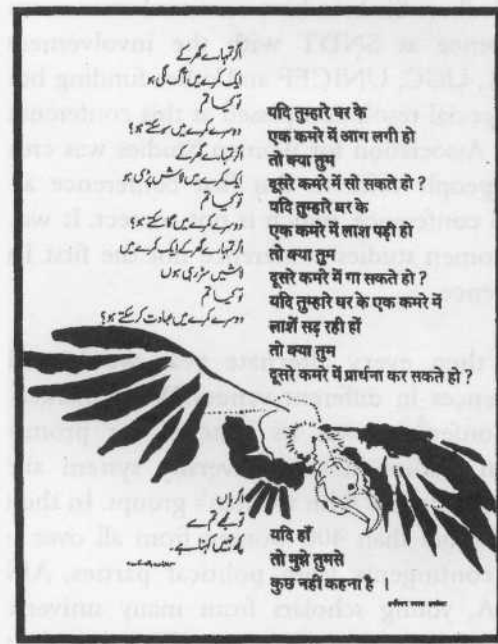 اگر تمہارے گھر کے
ایک کمرے میں آگ لگی ہو
تو کیا تم
دوسرے کمرے میں سو سکتے ہو؟
اگر تمہارے گھر کے
ایک کمرے میں لاشیں پڑی ہو
تو کیا تم
دوسرے کمرے میں گا سکتے ہو؟
اگر تمہارے گھر کے ایک کمرے میں
لاشیں سڑ رہی ہوں
تو کیا تم
دوسرے کمرے میں عبادت کر سکتے ہو؟
यदि तुम्हारे घर के
एक कमरे में आग लगी हो
तो क्या तुम
दूसरे कमरे में सो सकते हो ?
यदि तुम्हारे घर के
एक कमरे में लाश पड़ी हो
तो क्या तुम
दूसरे कमरे में गा सकते हो ?
यदि तुम्हारे घर के एक कमरे में
लाशें सड़ रही हों
तो क्या तुम
दूसरे कमरे में प्रार्थना कर सकते हो ?
اگر ہاں
تو مجھے تم سے
کچھ نہیں کہنا ہے۔
यदि हाँ
तो मुझे तुमसे
कुछ नहीं कहना है ।